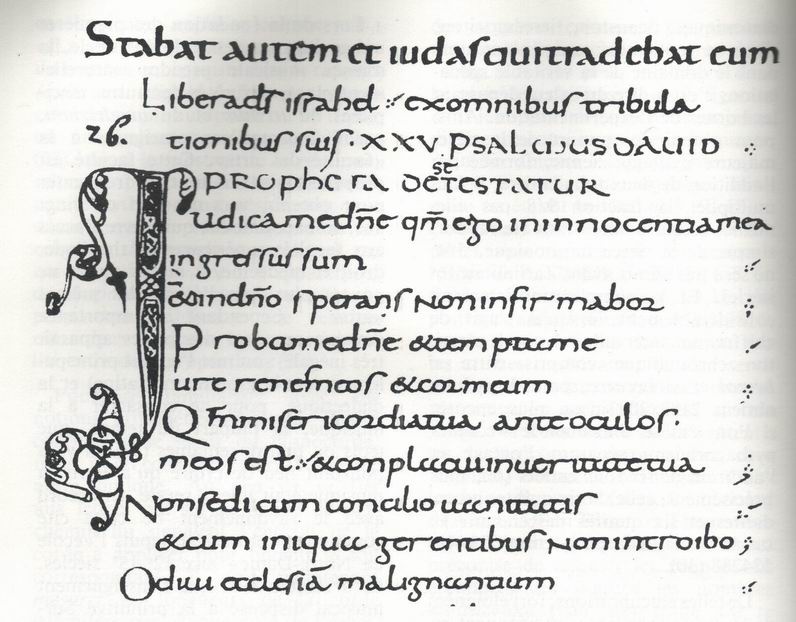 Stabat autem et iudas qui tradebat eum
Liberad̄s israhel exomnibus tribula
tionibus suis · XXV PSALMUS DAUID
26.
st
PROPHETA DETESTATUR
Iudicamedn̄e qm̄ego ininnocentiamea
ingressussum
&indn̄o sperans Noninfirmabor
Probamedn̄e &temptame
ure renesmeos &cormeum
Qm̄misericordiatua anteoculos·
meosest &conplacuiinueritatetua
Nonsedi cum concilio uanitatis
&cum iniqua gerentibus Nonintroibo
Odiui ecclesiā malignantium